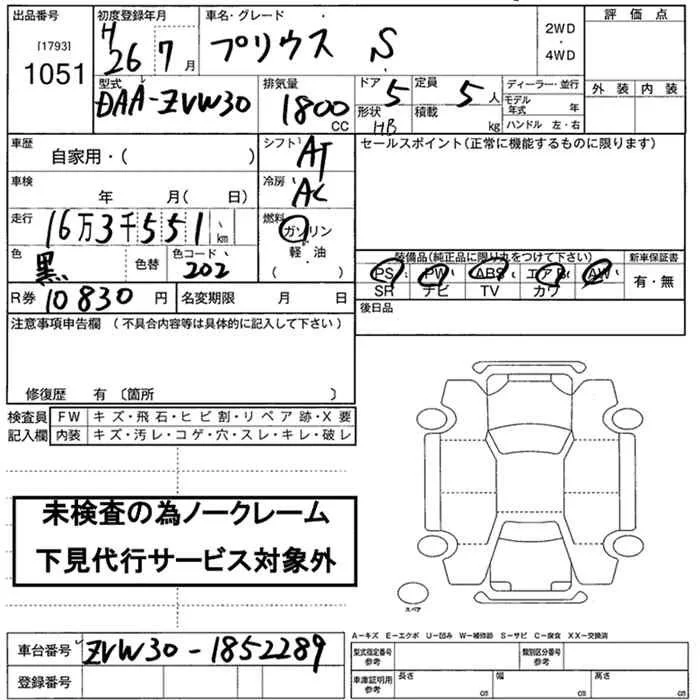 出品番号 初度登録年月 車名・グレード 評価点
[1793] 1051 H 26 7 月 プリウス S 2WD・4WD
型式 排気量 ドア 定員 ディーラー・並行 外装 内装
DAA-ZVW30 1800 CC 5 5 人 モデル年式 年
形状 HB 積載 kg ハンドル 左・右
車歴 自家用・( ) シフト AT セールスポイント(正常に機能するものに限ります)
車検 年 月( 日) 冷房 AC
走行 16万3千551 km 燃料 ガソリン
軽・油
( )
色 黒 色替 色コード 202
装備品(純正品に限り丸をつけて下さい) 新車保証書
PS PW ABS エアB AW 有・無
SR ナビ TV カワ
R券 10830 円 名変期限 月 日 後日品
注意事項申告欄 (不具合内容等は具体的に記入して下さい)
修復歴 有 〔箇所 〕
検査員 FW キズ・飛石・ヒビ割・リペア跡・X要
記入欄 内装 キズ・汚レ・コゲ・穴・スレ・キレ・破レ
未検査の為ノークレーム
下見代行サービス対象外
スペア
A-キズ E-エクボ U-凹み W-補修跡 S-サビ C-腐食 XX-交換済
車台番号 ZVW30-1852289 型式指定番号 参考 類別区分番号 参考
登録番号 車庫証明用 参考 長さ cm 幅 cm 高さ cm